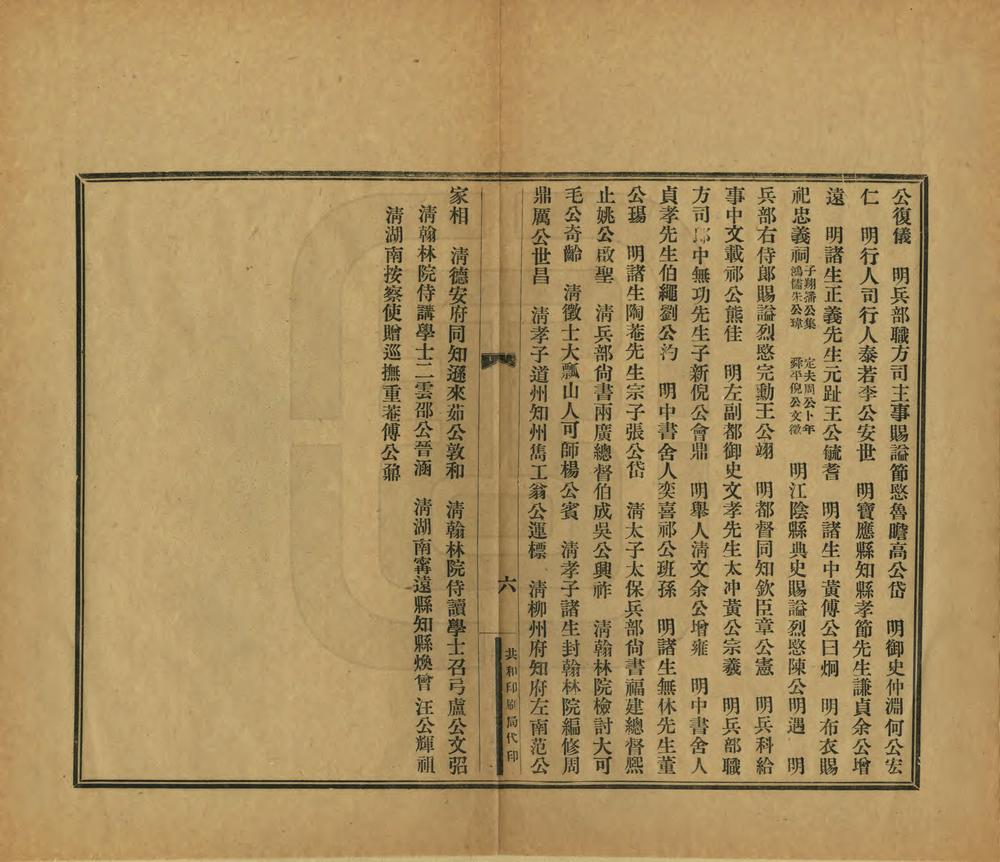 公復儀　明兵部職方司主事賜謚節愍魯瞻高公岱　明御史仲淵何公宏
仁　明行人司行人泰若李公安世　明寶應縣知縣孝節先生謙貞余公增
遠　明諸生正義先生元趾王公毓蓍　明諸生中黃傅公日炯　明布衣賜
祀忠義祠子翔潘公集　定夫周公卜年
鴻儒朱公瑋　舜平倪公文徵　明江陰縣典史賜謚烈愍陳公明遇　明
兵部右侍郎賜謚烈愍完勳王公翊　明都督同知欽臣章公憲　明兵科給
事中文載祁公熊佳　明左副都御史文孝先生太冲黃公宗羲　明兵部職
方司郎中無功先生子新倪公會鼎　明舉人清文余公增雍　明中書舍人
貞孝先生伯繩劉公汋　明中書舍人奕喜祁公班孫　明諸生無休先生董
公瑒　明諸生陶菴先生宗子張公岱　清太子太保兵部尚書福建總督熙
止姚公啟聖　清兵部尚書兩廣總督伯成吳公興祚　清翰林院檢討大可
毛公奇齡　清徵士大瓢山人可師楊公賓　清孝子諸生封翰林院編修周
鼎厲公世昌　清孝子道州知州雋工翁公運標　清柳州府知府左南范公
六
共和印刷局代印
家相　清德安府同知遜來茹公敦和　清翰林院侍讀學士召弓盧公文弨
清翰林院侍講學士二雲邵公晉涵　清湖南寧遠縣知縣煥曾汪公輝祖
清湖南按察使贈巡撫重菴傅公鼐